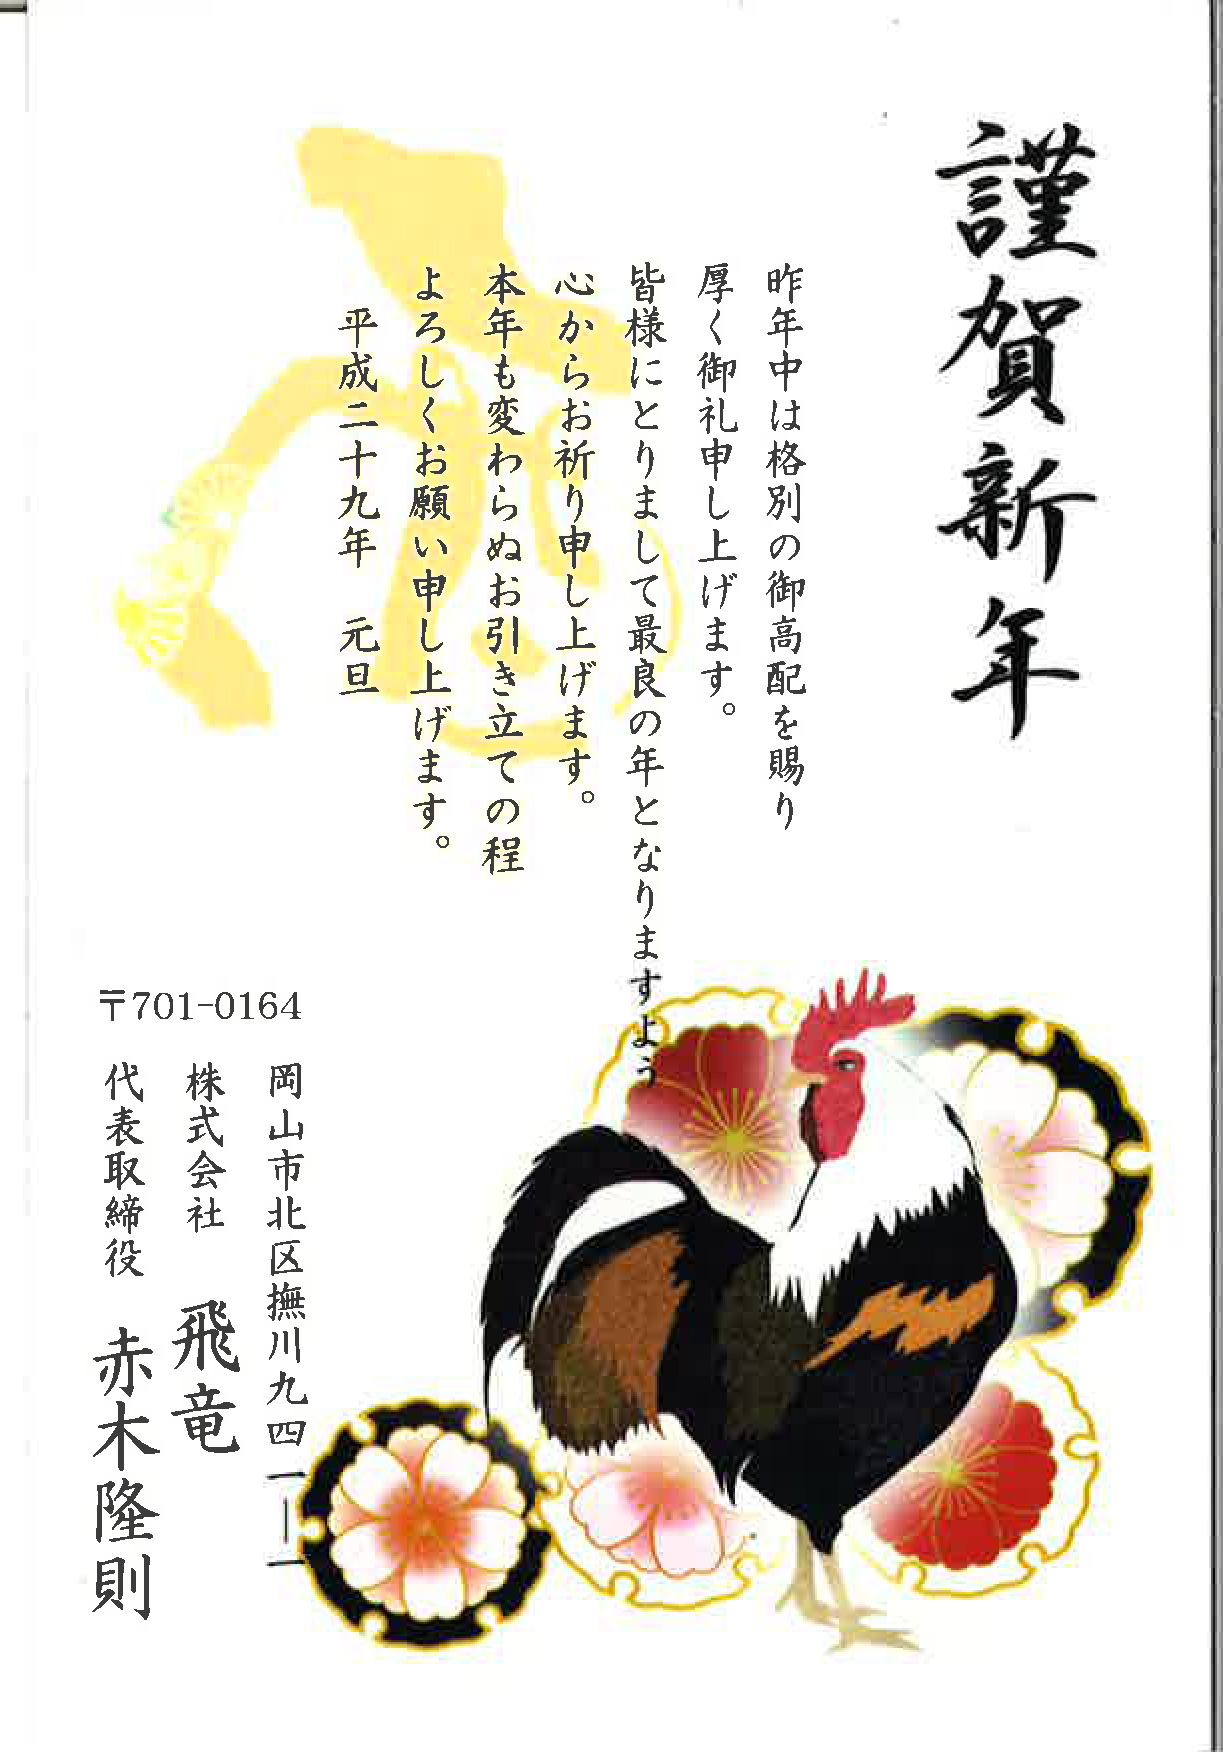 謹賀新年
昨年中は格別の御高配を賜り
厚く御礼申し上げます。
皆様にとりまして最良の年となりますよう
心からお祈り申し上げます。
本年も変わらぬお引き立ての程
よろしくお願い申し上げます。
平成二十九年　元旦
〒701-0164
岡山市北区撫川九四一―一
株式会社　飛竜
代表取締役　赤木隆則